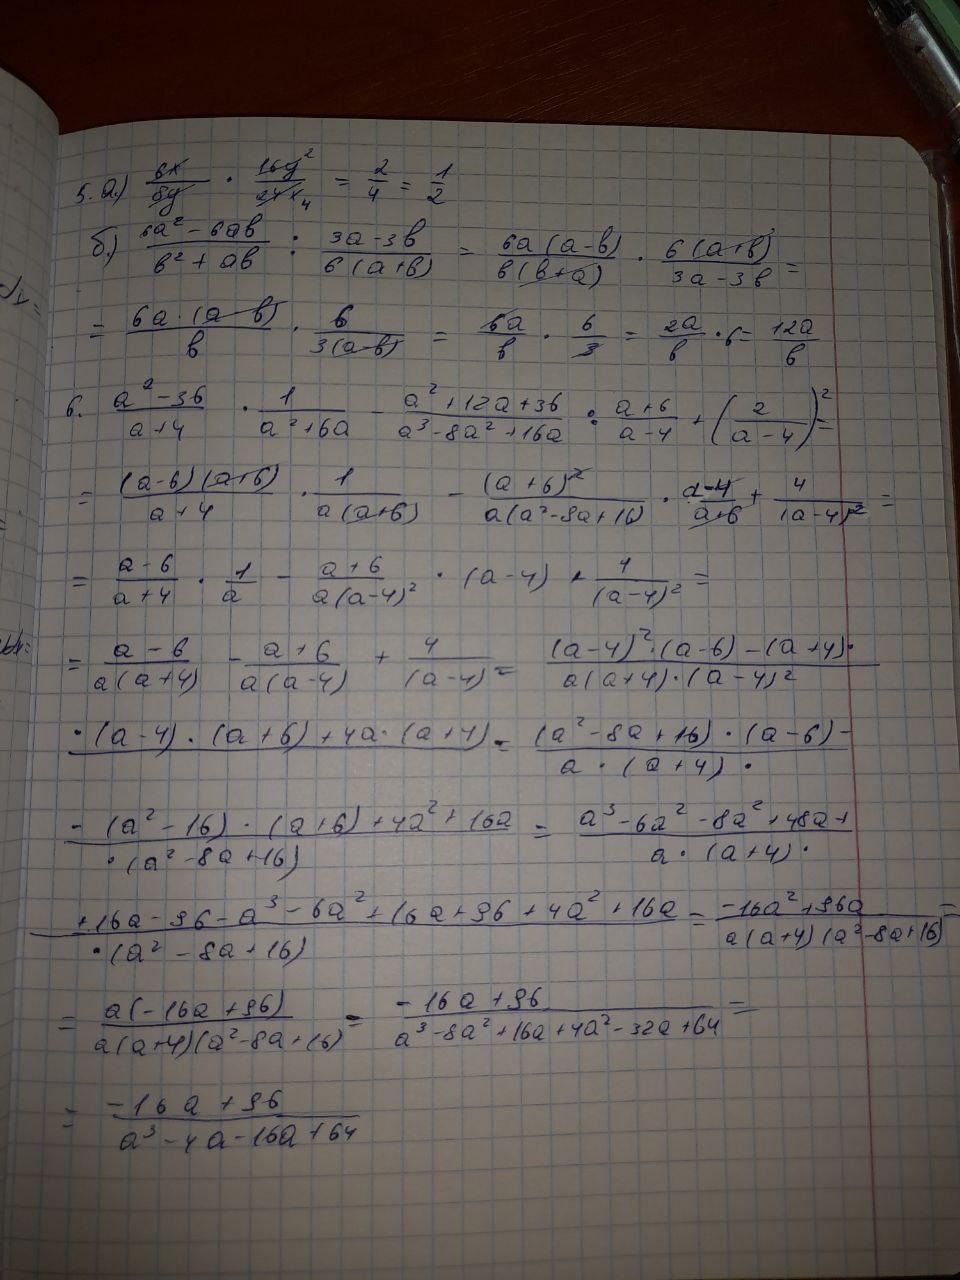 5. а.) 6x/8y · 16y²/24x 4 = 2/4 = 1/2
б.) 6a² - 6ab / b² + ab : 3a - 3b / 6(a+b) = 6a(a-b) / b(b+a) · 6(a+b) / 3a - 3b =
= 6a · (a - b) / b · 6 / 3(a-b) = 6a / b · 6 / 3 = 2a / b · 6 = 12a / b
6. a² - 36 / a + 4 · 1 / a² + 6a - a² + 12a + 36 / a³ - 8a² + 16a : a + 6 / a - 4 + (2 / a - 4)² =
= (a-6)(a+6) / a + 4 · 1 / a(a+6) - (a+6)² / a(a² - 8a + 16) · a - 4 / a + 6 + 4 / (a-4)² =
= a - 6 / a + 4 · 1 / a - a + 6 / a(a-4)² · (a - 4) + 4 / (a-4)² =
= a - 6 / a(a+4) - a + 6 / a(a-4) + 4 / (a-4)² = (a-4)² · (a-6) - (a+4) · / a(a+4) · (a-4)²
· (a-4) · (a+6) + 4a · (a+4) = (a² - 8a + 16) · (a-6) - / a · (a+4) ·
- (a² - 16) · (a+6) + 4a² + 16a / · (a² - 8a + 16) = a³ - 6a² - 8a² + 48a + / a · (a+4) ·
+ 16a - 96 - a³ - 6a² + 16a + 96 + 4a² + 16a / · (a² - 8a + 16) = -16a² + 96a / a(a+4)(a² - 8a + 16) =
= a(-16a + 96) / a(a+4)(a² - 8a + 16) = -16a + 96 / a³ - 8a² + 16a + 4a² - 32a + 64 =
= -16a + 96 / a³ - 4a - 16a + 64